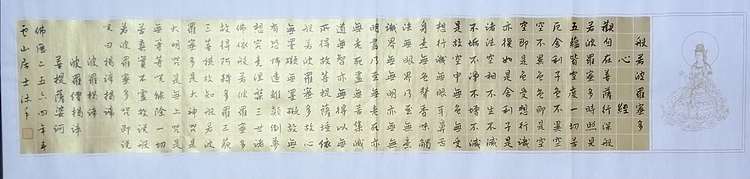 般若波羅蜜多
心經
觀自在菩薩行深般
若波羅蜜多時照見
五蘊皆空度一切苦
厄舍利子色不異空
空不異色色即是空
空即是色受想行識
亦復如是舍利子是
諸法空相不生不滅
不垢不淨不增不減
是故空中無色無受
想行識無眼耳鼻舌
身意無色聲香味觸
法無眼界乃至無意
識界無無明亦無無
明盡乃至無老死亦
無老死盡無苦集滅
道無智亦無得以無
所得故菩提薩埵依
般若波羅蜜多故心
無罣礙無罣礙故無
有恐怖遠離顛倒夢
想究竟涅槃三世諸
佛依般若波羅蜜多
故得阿耨多羅三藐
三菩提故知般若波
羅蜜多是大神咒是
大明咒是無上咒是
無等等咒能除一切
苦真實不虛故說般
若波羅蜜多咒即說
咒曰揭諦揭諦
波羅揭諦
波羅僧揭諦
菩提薩婆訶
佛曆二五六四年
雲山居士沐手